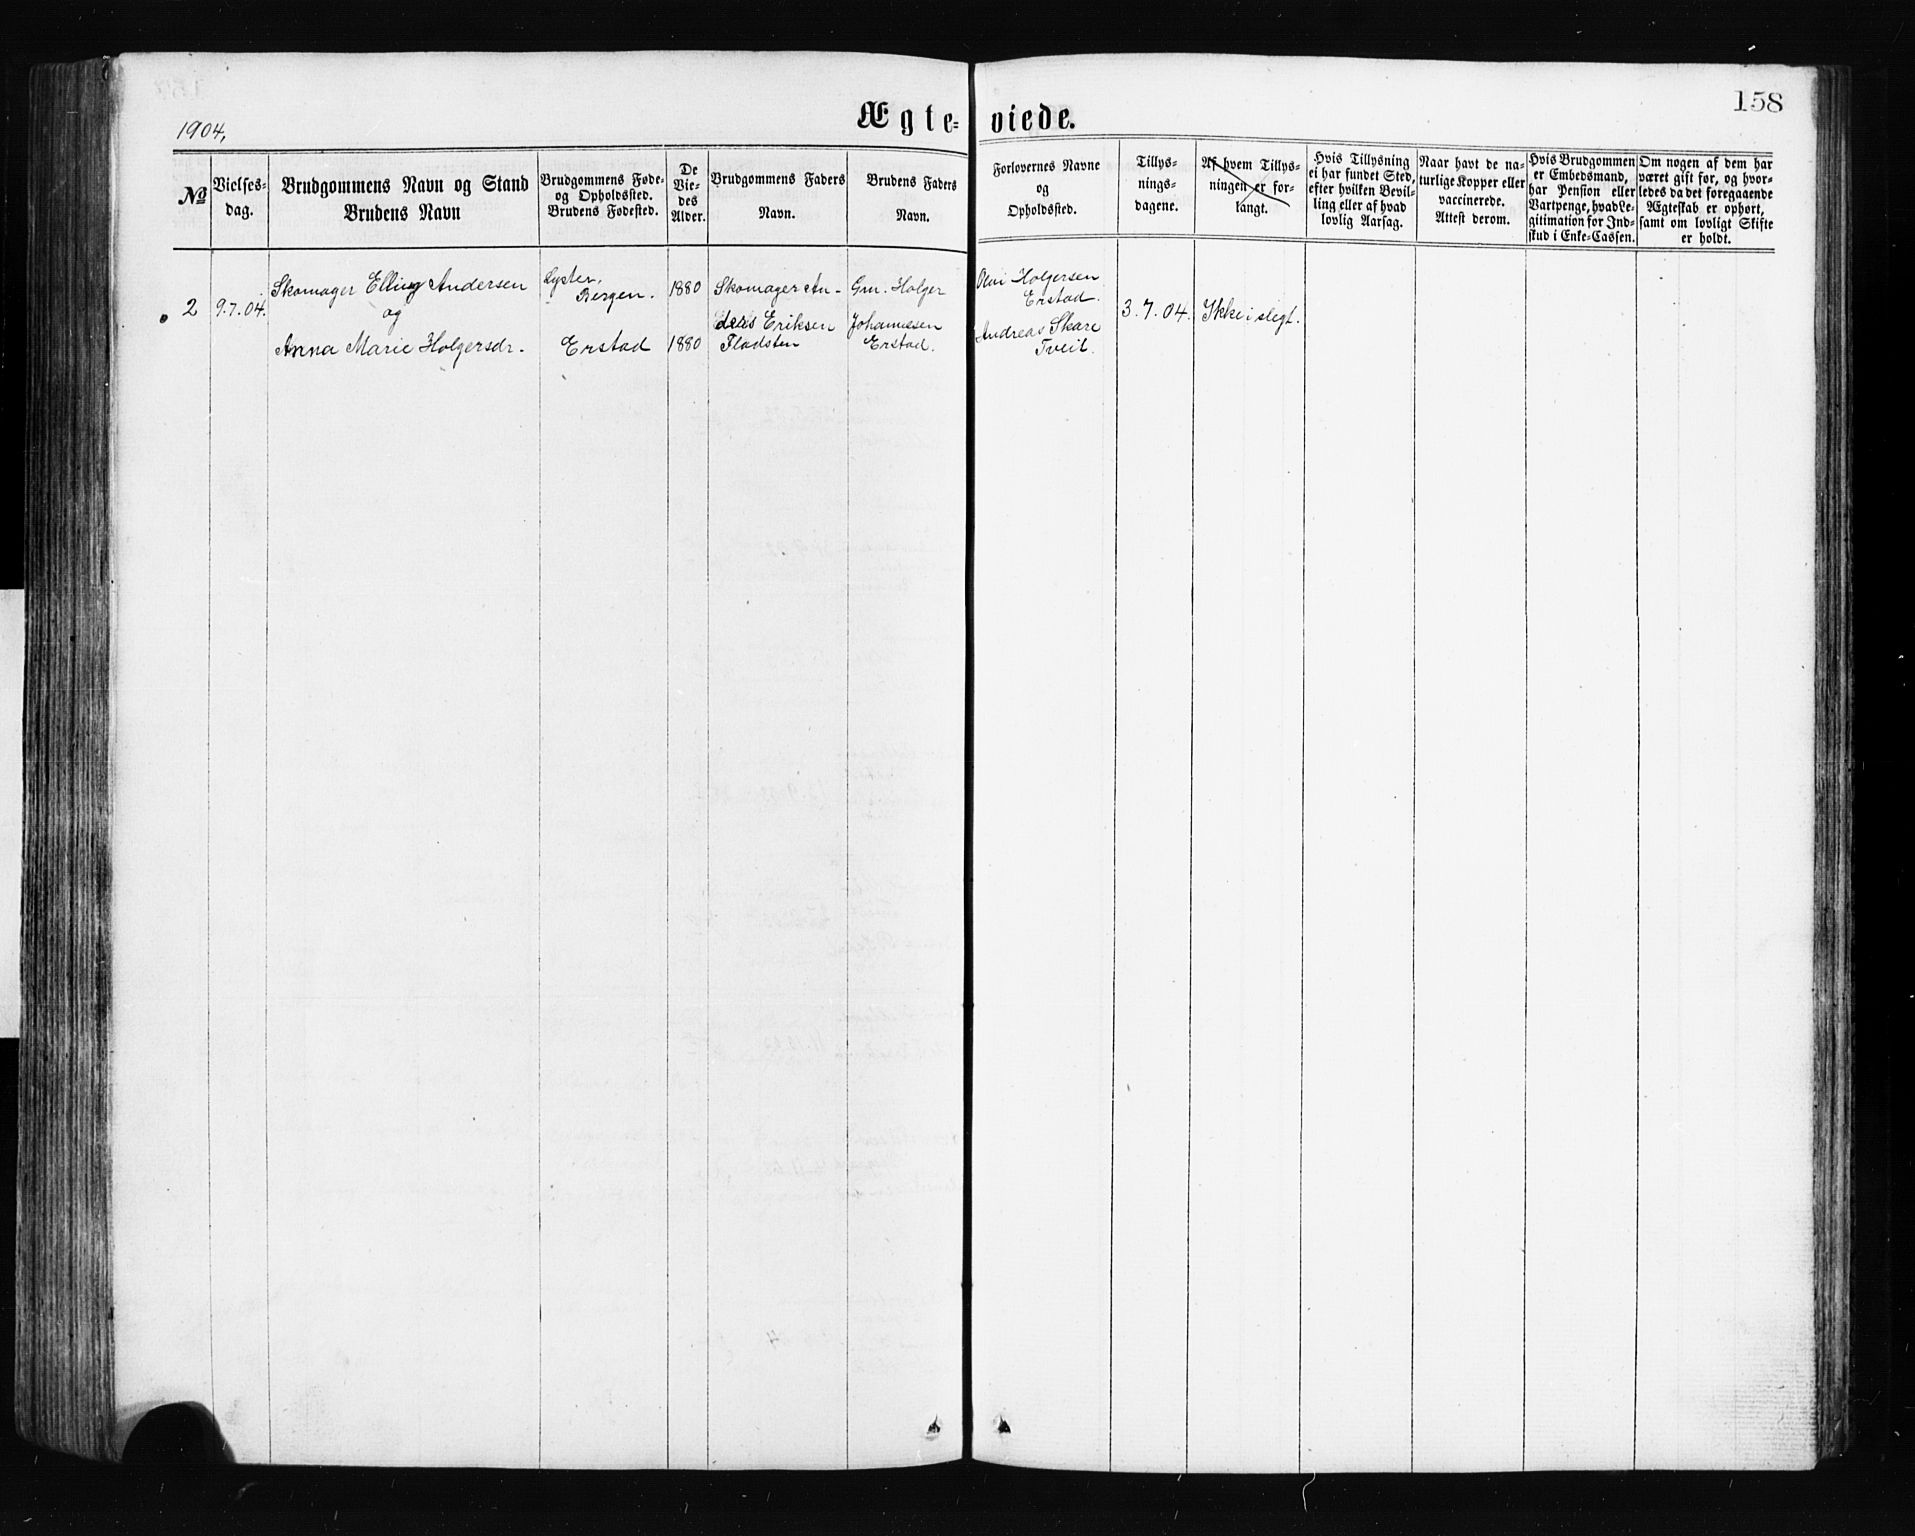 158
1904,
Ægte-viede.
№
Vielses-
dag.
Brudgommens Navn og Stand
Brudens Navn
Brudgommens Føde-
og Opholdssted.
Brudens Fødested.
De
Vie-
des
Alder.
Brudgommens Faders
Navn.
Brudens Faders
Navn.
Forlovernes Navne
og
Opholdssted.
Tillys-
nings-
dagene.
Af hvem Tillys-
ningen er for-
langt.
Hvis Tillysning
ei har fundet Sted,
efter hvilken Bevil-
ling eller af hvad
lovlig Aarsag.
Naar havt de na-
turlige Kopper eller
vaccinerede.
Attest derom.
Hvis Brudgommen
er Embedsmand,
har Pension eller
Vartpenge, hvad Le-
gitimation for Ind-
skud i Enke-Cassen.
Om nogen af dem har
været gift før, og hvor-
ledes da det foregaaende
Ægteskab er ophørt,
samt om lovligt Skifte
er holdt.
2
9.7.04.
Skomager Elling Andersen
og
Anna Marie Holgersdr.
Lyster,
Bergen.
Erstad
1880
1880
Skomager An-
ders Eriksen
Fladsten
Gm. Holger
Johannesen
Erstad.
Holgersen
Erstad.
Andreas Skare
Tveit.
3.7.04.
Ikke i slegt.